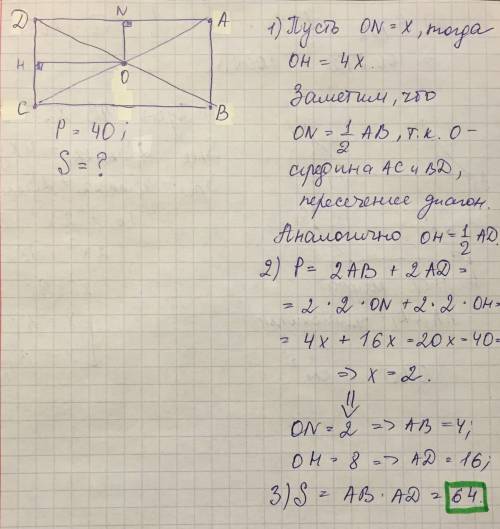 D N A
H O
C B
P = 40;
S = ?
1) Пусть ON = x, тогда
OH = 4x.
Заметим, что
ON = 1/2 AB, т.к. O -
середина AC и BD,
пересечение диагон.
Аналогично OH = 1/2 AD.
2) P = 2AB + 2AD =
= 2 · 2 · ON + 2 · 2 · OH =
= 4x + 16x = 20x = 40 =
=> x = 2.
⇓
ON = 2 => AB = 4;
OH = 8 => AD = 16;
3) S = AB · AD = 64.